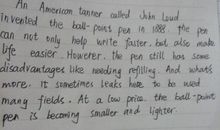 An American tanner called John Loud
invented the ball-point pen in 1888. The pen
can not only help write faster, but also make
life easier. However, the pen still has some
disadvantages like needing refilling. And what's
more, it sometimes leaks here to be used
many fields. At a low price, the ball-point
pen is becoming smaller and lighter.